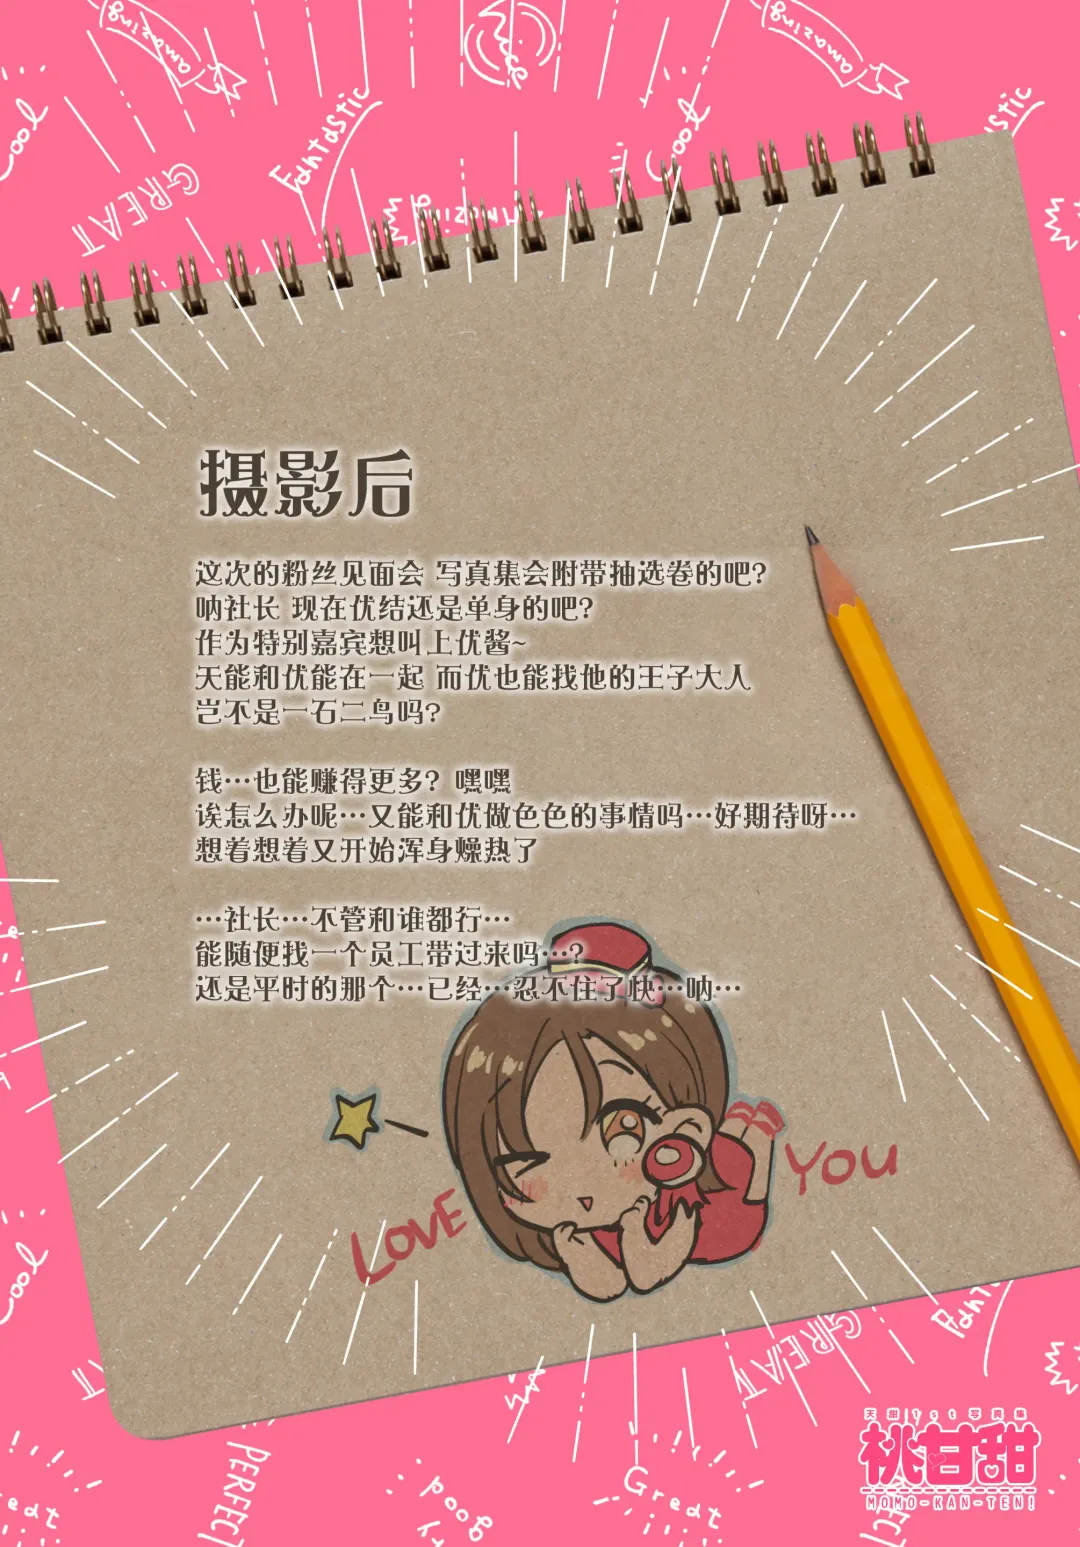 amazing
amazing
Nice
Cool
Fantastic
Cool
GREAT
Amazing
摄影后
这次的粉丝见面会 写真集会附带抽选卷的吧?
呐社长 现在优结还是单身的吧?
作为特别嘉宾想叫上优酱~
天能和优能在一起 而优也能找他的王子大人
岂不是一石二鸟吗?
钱…也能赚得更多? 嘿嘿
诶怎么办呢…又能和优做色色的事情吗…好期待呀…
想着想着又开始浑身燥热了
…社长…不管和谁都行…
能随便找一个员工带过来吗…?
还是平时的那个…已经…忍不住了快…呐…
LOVE
YOU
Cool
GREAT
PERFECT
good
Great
天甜1st写真集
桃甘甜
MOMO-KAN-TEN!